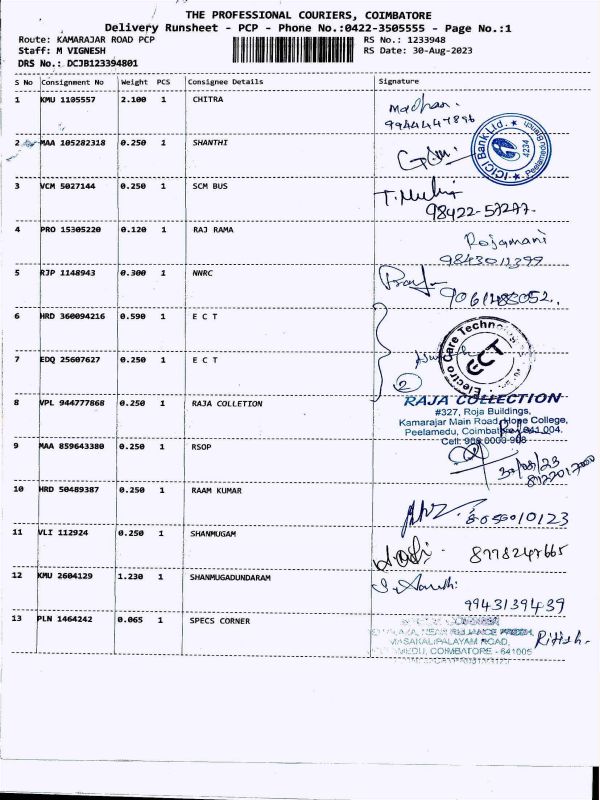 THE PROFESSIONAL COURIERS, COIMBATORE
Delivery Runsheet - PCP - Phone No.:0422-3505555 - Page No.:1
Route: KAMARAJAR ROAD PCP
RS No.: 1233948
Staff: M VIGNESH
RS Date: 30-Aug-2023
DRS No.: DCJB123394801
S No Consignment No Weight PCS Consignee Details Signature
1 KMU 1105557 2.100 1 CHITRA
Madhan.
9944447896
2 MAA 105282318 0.250 1 SHANTHI
ICICI Bank Ltd. Peelamedu Branch
4234
3 VCM 5027144 0.250 1 SCM BUS
98422-57277.
4 PRO 15305220 0.120 1 RAJ RAMA
Rajamani
9843011399
5 RJP 1148943 0.300 1 NNRC
9061488052.
6 HRD 360094216 0.590 1 E C T
Electro Care Technolog
ECT
7 EDQ 25607627 0.250 1 E C T
2
8 VPL 944777868 0.250 1 RAJA COLLETION
RAJA COLLECTION
#327, Roja Buildings,
Kamarajar Main Road, Hope College,
Peelamedu, Coimbatore 641 004.
Cell:
9 MAA 859643380 0.250 1 RSOP
30/08/23
10 HRD 50489387 0.250 1 RAAM KUMAR
8056010123
11 VLI 112924 0.250 1 SHANMUGAM
8778247665
12 KMU 2604129 1.230 1 SHANMUGADUNDARAM
9943139439
13 PLN 1464242 0.065 1 SPECS CORNER
NEAR RELIANCE FRESH,
MASAKALIPALAYAM ROAD,
COIMBATORE - 641005
Ritish.